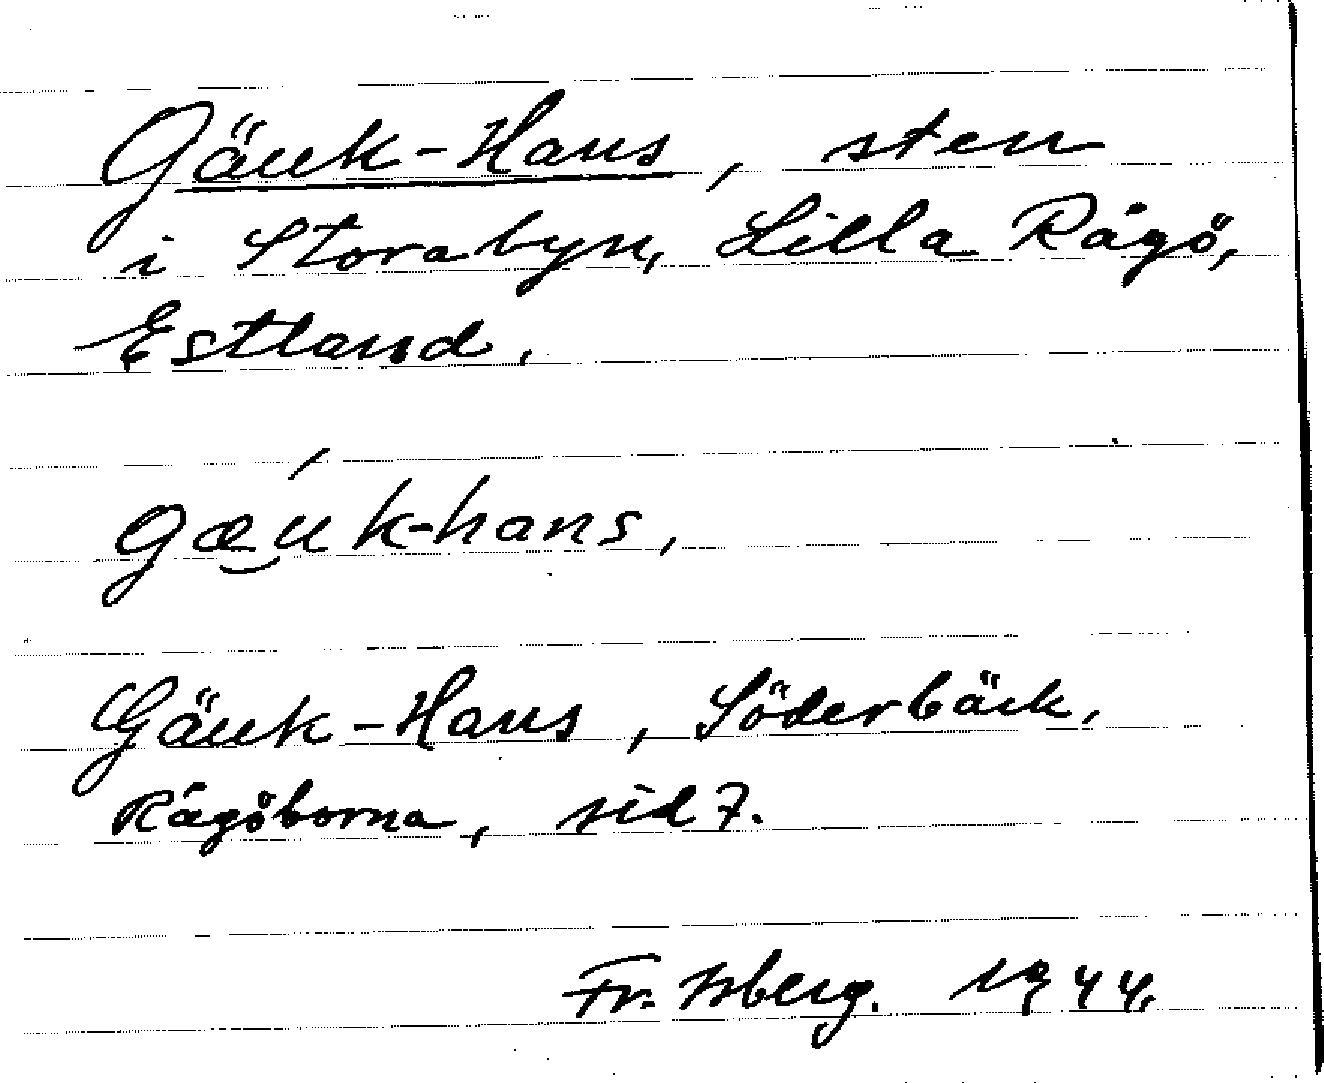 Gäuk-Hans, sten
i Storabyn, Lilla Rågö,
Estland.
gǽ̯uk-hans,
Gäuk-Hans, Söderbäck,
Rågöborna, sid 7.
Fr. Isberg. 1944.